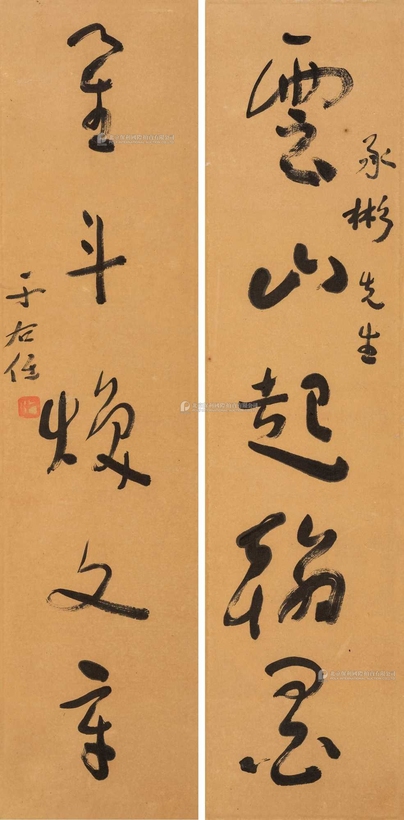 雲山起翰墨
承彬先生
星斗煥文章
于右任